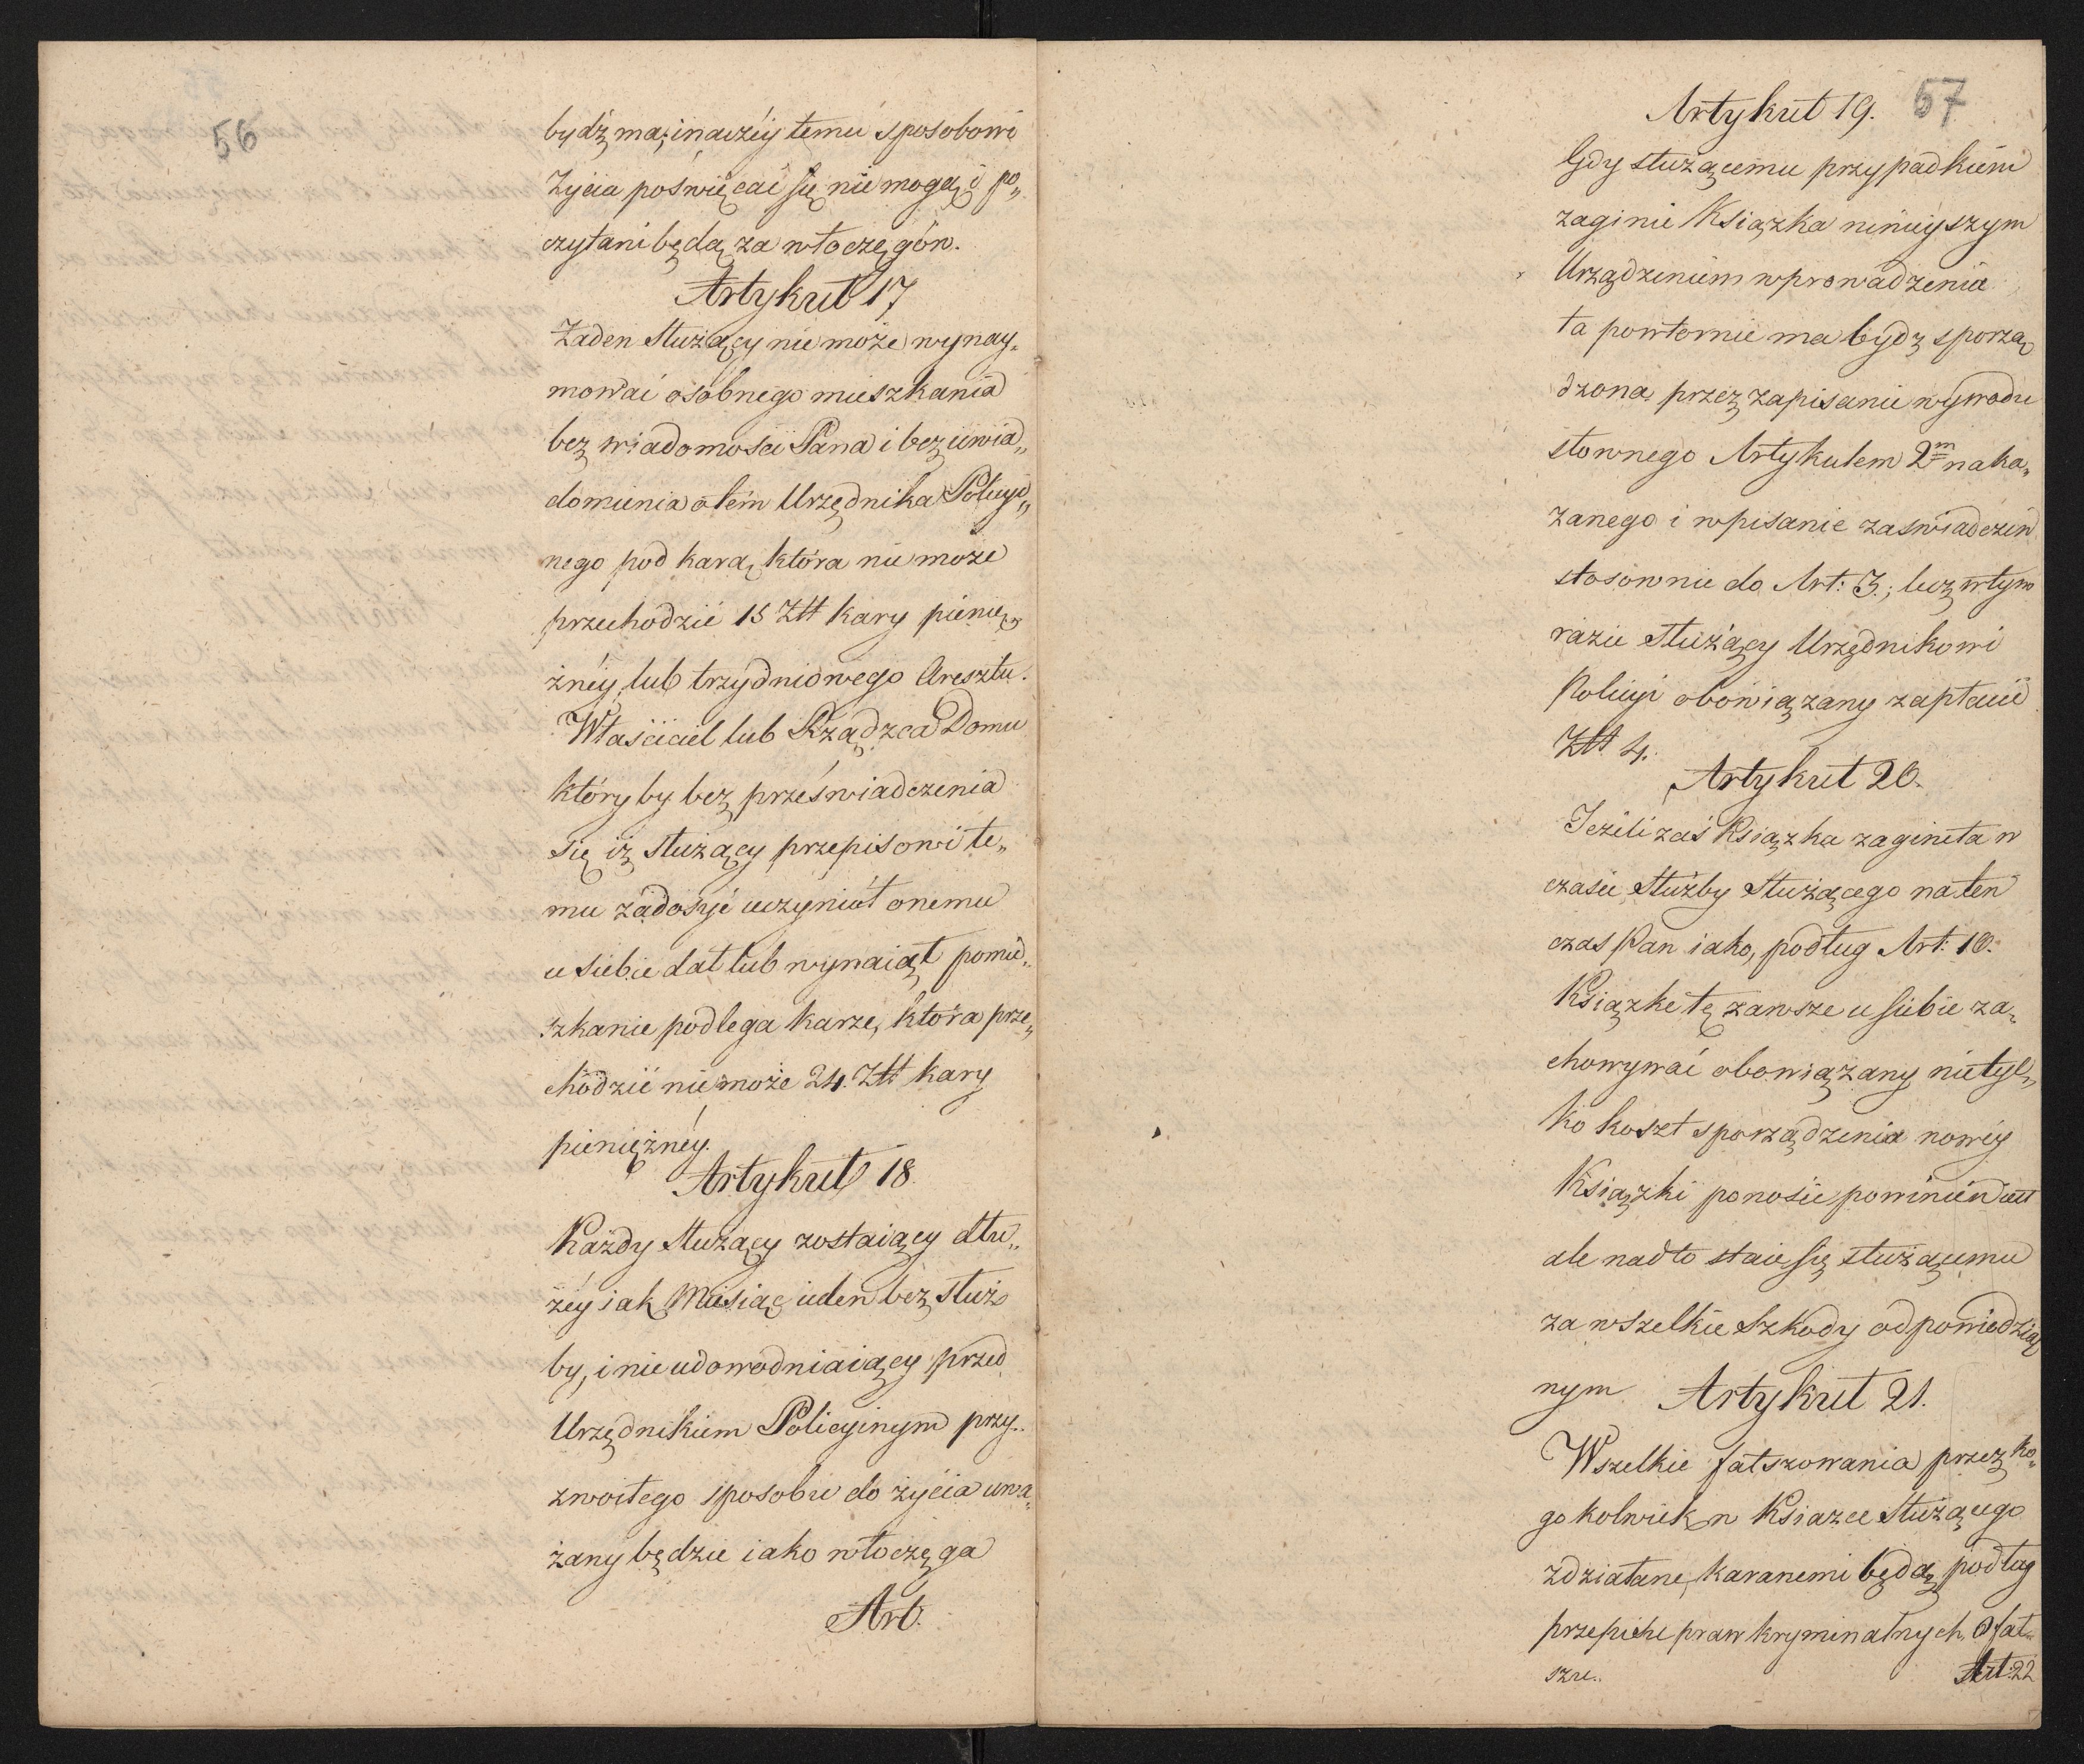 56
bydź ma, inaczéy temu sposobowi
Życia poświęcać się nie mogą i po„
czytani będą za włoczęgów.
Artykuł 17
Żaden Służący nie może wynay„
mować osobnego mieszkania
bez wiadomości Pana i bez uwia„
domienia o tém Urzędnika Policyi„
nego pod karą, która nie może
przechodzić 15 Złł kary pienię„
żnéy, lub trzydniowego Aresztu.
Właściciel lub Rządzca Domu
któryby bez przeświadczenia
się iż służący przepisowi te„
mu zadosyć uczynił onemu
u siebie dał lub wynaiął pomie„
szkanie podlega karze, która prze„
chodzić nie może 24. Złł kary
pieniężnéy.
Artykuł 18.
Każdy służący zostaiący dłu„
żéy iak Miesiąc ieden bez służ„
by, i nie udowodniaiący przed
Urzędnikiem Policyinym przy„
zwoitego sposobu do życia uwa„
żany będzie iako włoczęga
Art.
57
Artykuł 19.
Gdy służącemu przypadkiem
zaginie Książka ninieyszym
Urządzeniem wprowadzenia
ta powtornie ma bydź sporzą
dzona, przez zapisanie wywodu
słownego Artykułem 2m naka„
zanego i wpisanie zaświadczeń
stosownie do Art: 3.; lecz w tym
razie Służący Urzędnikowi
Policyi obowiązany zapłacić
Złł 4.
Artykuł 20.
Jeżeli zaś Książka zagineła w
czasie służby Służącego na ten
czas Pan iako, podług Art: 10.
Książkę tę zawsze u siebie za„
chowywać obowiązany nie tyl„
ko koszt sporządzenia nowéy
Książki ponosić powinien
ale nadto staie się służącemu
za wszelkie szkody odpowiedzial
nym
Artykuł 21.
Wszelkie fałszowania przez ko„
gokolwiek w Książce Służącego
zdziałane, karanemi będą podług
przepisu praw kryminalnych o fał„
szu.
Art. 22